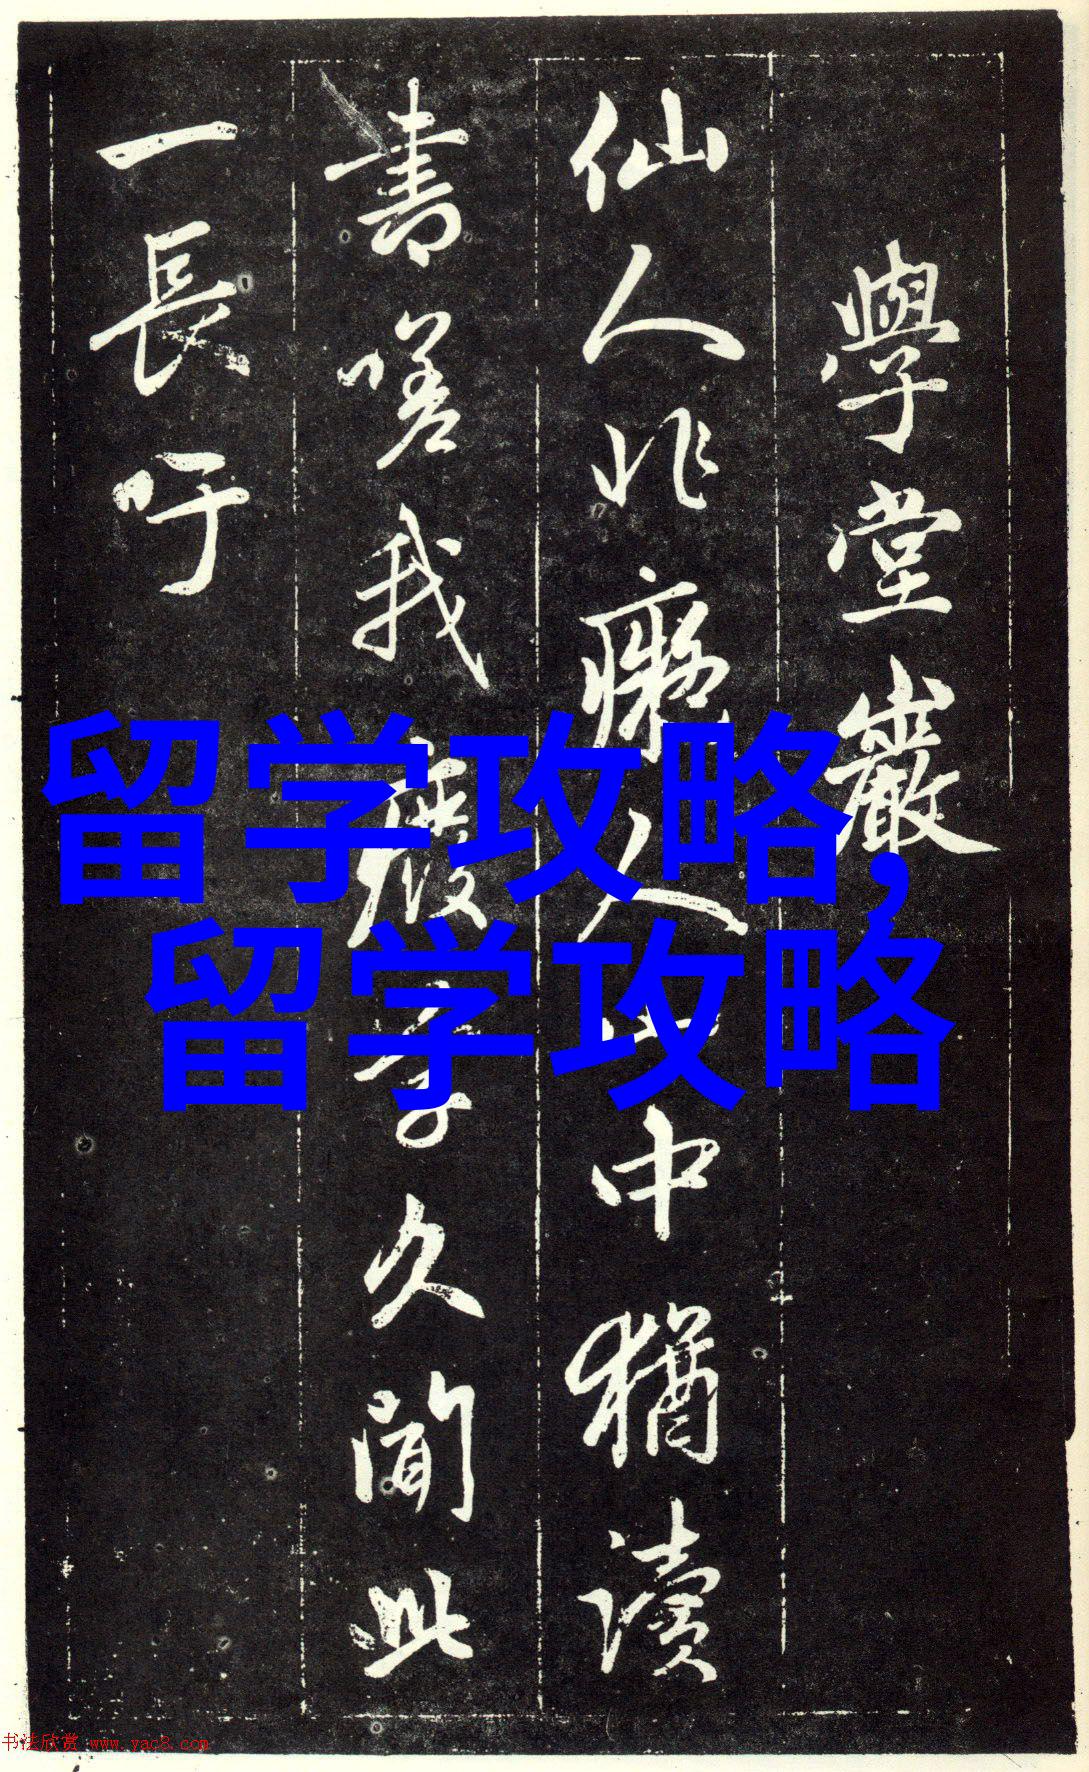 學堂巖
仙人非癡人山中猶讀
書嗟我廢學久聞此
一長吁
留学攻略,
留学攻略
书法欣赏 www.yac8.com